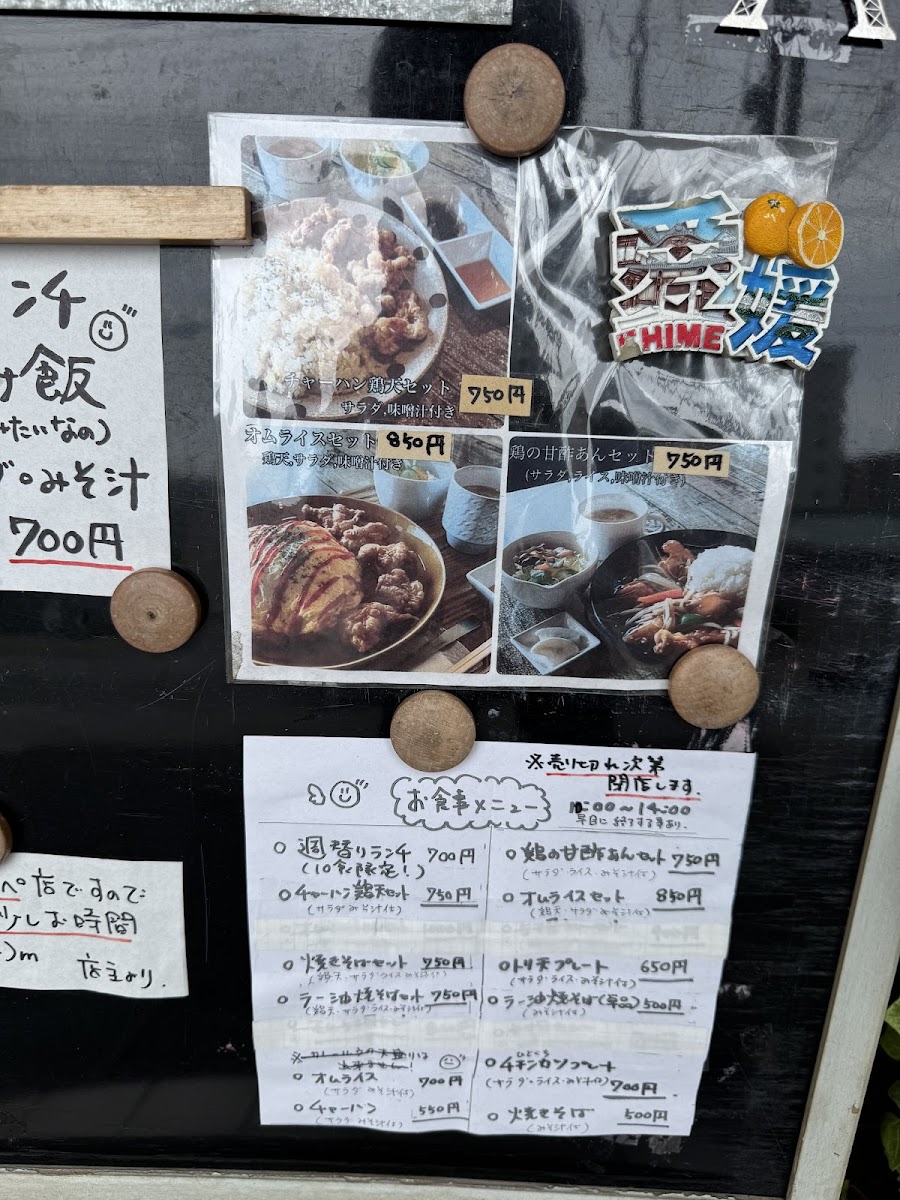 ンチ
け飯
みたいなの)
みそ汁
700円
チャーハン鶏天セット 750円
サラダ,味噌汁付き
愛媛
EHIME
オムライスセット 850円
鶏天,サラダ,味噌汁付き
鶏の甘酢あんセット 750円
(サラダ,ライス,味噌汁付き)
ペ店ですので
少しお時間
m
店主より.
※売り切れ次第
閉店します.
お食事メニュー
〜14:00
早目に終了する事あり.
○ 週替りランチ 700円
(10食限定!)
○ チャーハン鶏天セット 750円
(サラダみそ汁付)
○ 焼きそばセット 750円
(鶏天・サラダ・ライスみそ汁付)
○ ラー油焼そばセット 750円
(鶏天・サラダ・ライス・みそ汁付)
○ オムライス 700円
(サラダみそ汁付)
○ チャーハン 550円
(サラダみそ汁付)
○ 鶏の甘酢あんセット 750円
(サラダ・ライス・みそ汁付)
○ オムライスセット 850円
(鶏天・サラダみそ汁付)
○ トリ天プレート 650円
(サラダ・ライス・みそ汁付)
○ ラー油焼そば(単品) 500円
(みそ汁付)
○ チキンカツプレート
(サラダ・ライス・みそ汁付) 700円
○ 焼きそば 500円
(みそ汁付)